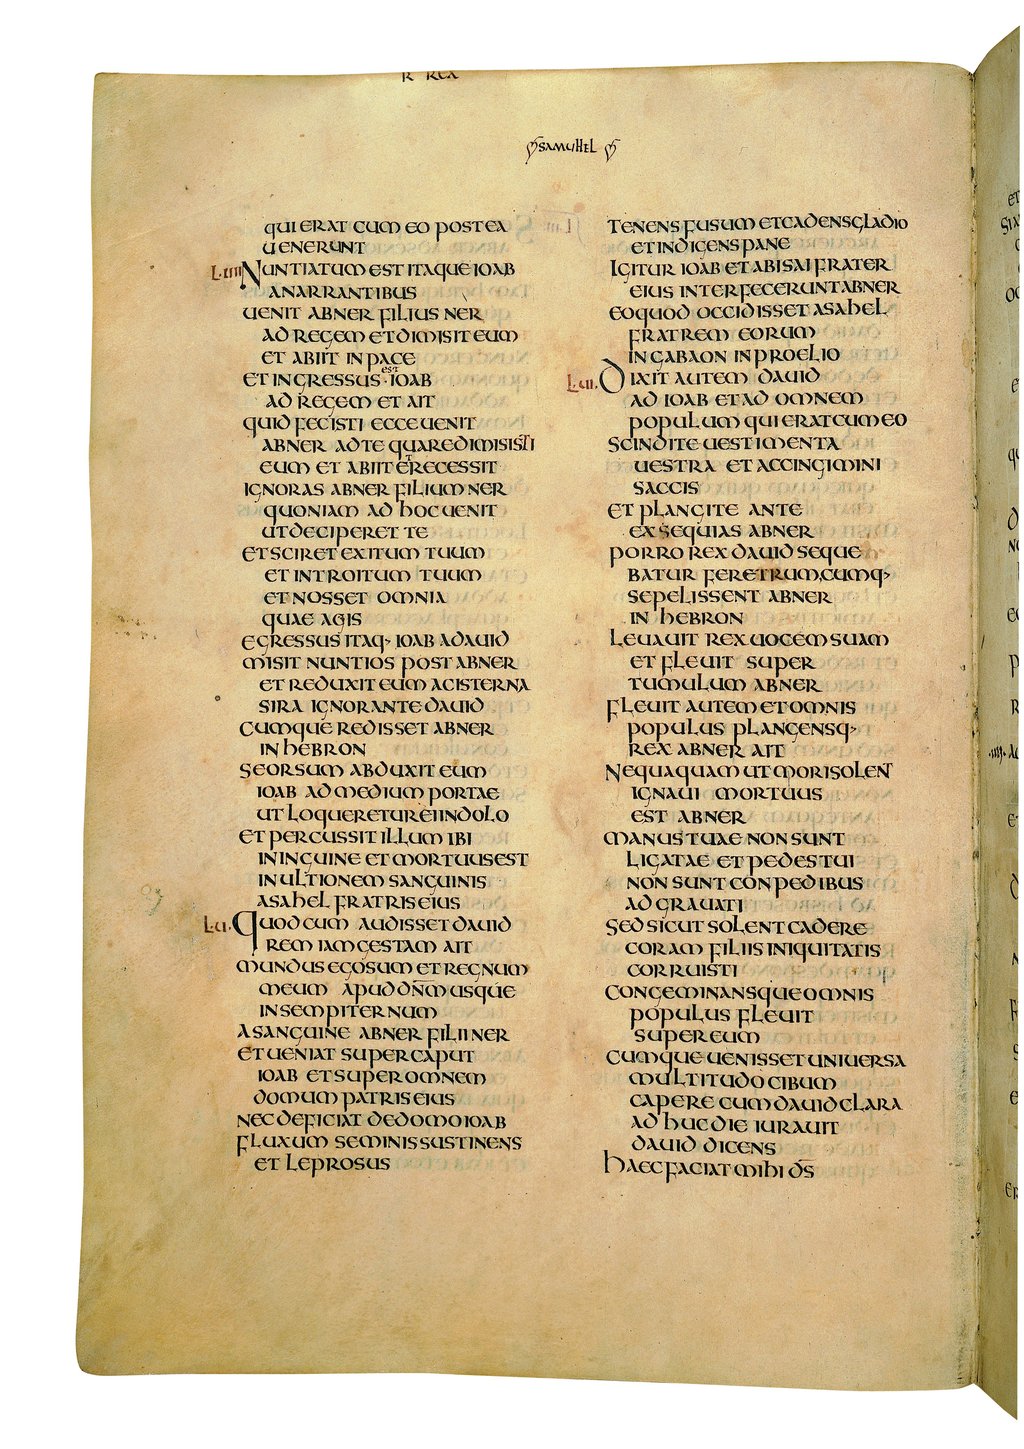 R REX
SAMUHEL
QUI ERAT CUM EO POSTEA
UENERUNT
L.IIII NUNTIATUM EST ITAQUE IOAB
ANARRANTIBUS
UENIT ABNER FILIUS NER
AD REGEM ET DIMISIT EUM
ET ABIIT IN PACE
ET INGRESSUS EST IOAB
AD REGEM ET AIT
QUID FECISTI ECCE UENIT
ABNER AD TE QUARE DIMISISTI
EUM ET ABIIT ET RECESSIT
IGNORAS ABNER FILIUM NER
QUONIAM AD HOC UENIT
UT DECIPERET TE
ET SCIRET EXITUM TUUM
ET INTROITUM TUUM
ET NOSSET OMNIA
QUAE AGIS
EGRESSUS ITAQ· IOAB A DAUID
MISIT NUNTIOS POST ABNER
ET REDUXIT EUM A CISTERNA
SIRA IGNORANTE DAUID
CUMQUE REDISSET ABNER
IN HEBRON
SEORSUM ABDUXIT EUM
IOAB AD MEDIUM PORTAE
UT LOQUERETUR EI IN DOLO
ET PERCUSSIT ILLUM IBI
IN INGUINE ET MORTUUS EST
IN ULTIONEM SANGUINIS
ASAHEL FRATRIS EIUS
L.UI. QUOD CUM AUDISSET DAUID
REM IAM GESTAM AIT
MUNDUS EGO SUM ET REGNUM
MEUM APUD DNM USQUE
IN SEMPITERNUM
A SANGUINE ABNER FILII NER
ET UENIAT SUPER CAPUT
IOAB ET SUPER OMNEM
DOMUM PATRIS EIUS
NEC DEFICIAT DE DOMO IOAB
FLUXUM SEMINIS SUSTINENS
ET LEPROSUS
TENENS FUSUM ET CADENS GLADIO
ET INDIGENS PANE
IGITUR IOAB ET ABISAI FRATER
EIUS INTERFECERUNT ABNER
EO QUOD OCCIDISSET ASAHEL
FRATREM EORUM
IN GABAON IN PROELIO
L.UII. DIXIT AUTEM DAUID
AD IOAB ET AD OMNEM
POPULUM QUI ERAT CUM EO
SCINDITE UESTIMENTA
UESTRA ET ACCINGIMINI
SACCIS
ET PLANGITE ANTE
EXSEQUIAS ABNER
PORRO REX DAUID SEQUE
BATUR FERETRUM, CUMQ·
SEPELISSENT ABNER
IN HEBRON
LEUAUIT REX UOCEM SUAM
ET FLEUIT SUPER
TUMULUM ABNER
FLEUIT AUTEM ET OMNIS
POPULUS PLANGENSQ·
REX ABNER AIT
NEQUAQUAM UT MORI SOLENT
IGNAUI MORTUUS
EST ABNER
MANUS TUAE NON SUNT
LIGATAE ET PEDES TUI
NON SUNT CONPEDIBUS
ADGRAUATI
SED SICUT SOLENT CADERE
CORAM FILIIS INIQUITATIS
CORRUISTI
CONGEMINANSQUE OMNIS
POPULUS FLEUIT
SUPER EUM
CUMQUE UENISSET UNIUERSA
MULTITUDO CIBUM
CAPERE CUM DAUID CLARA
ADHUC DIE IURAUIT
DAUID DICENS
HAEC FACIAT MIHI DS